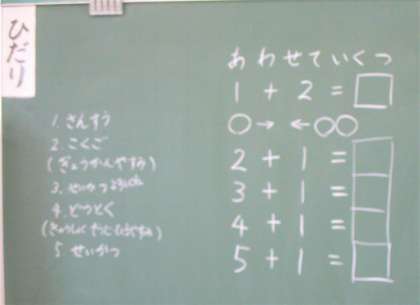 ひだり
あわせていくつ
1 + 2 = □
○→ ←○○
2 + 1 =
3 + 1 =
4 + 1 =
5 + 1 =
1. さんすう
2. こくご
(ぎょうかんやすみ)
3. せいかつ
4. どうとく
5. せいかつ